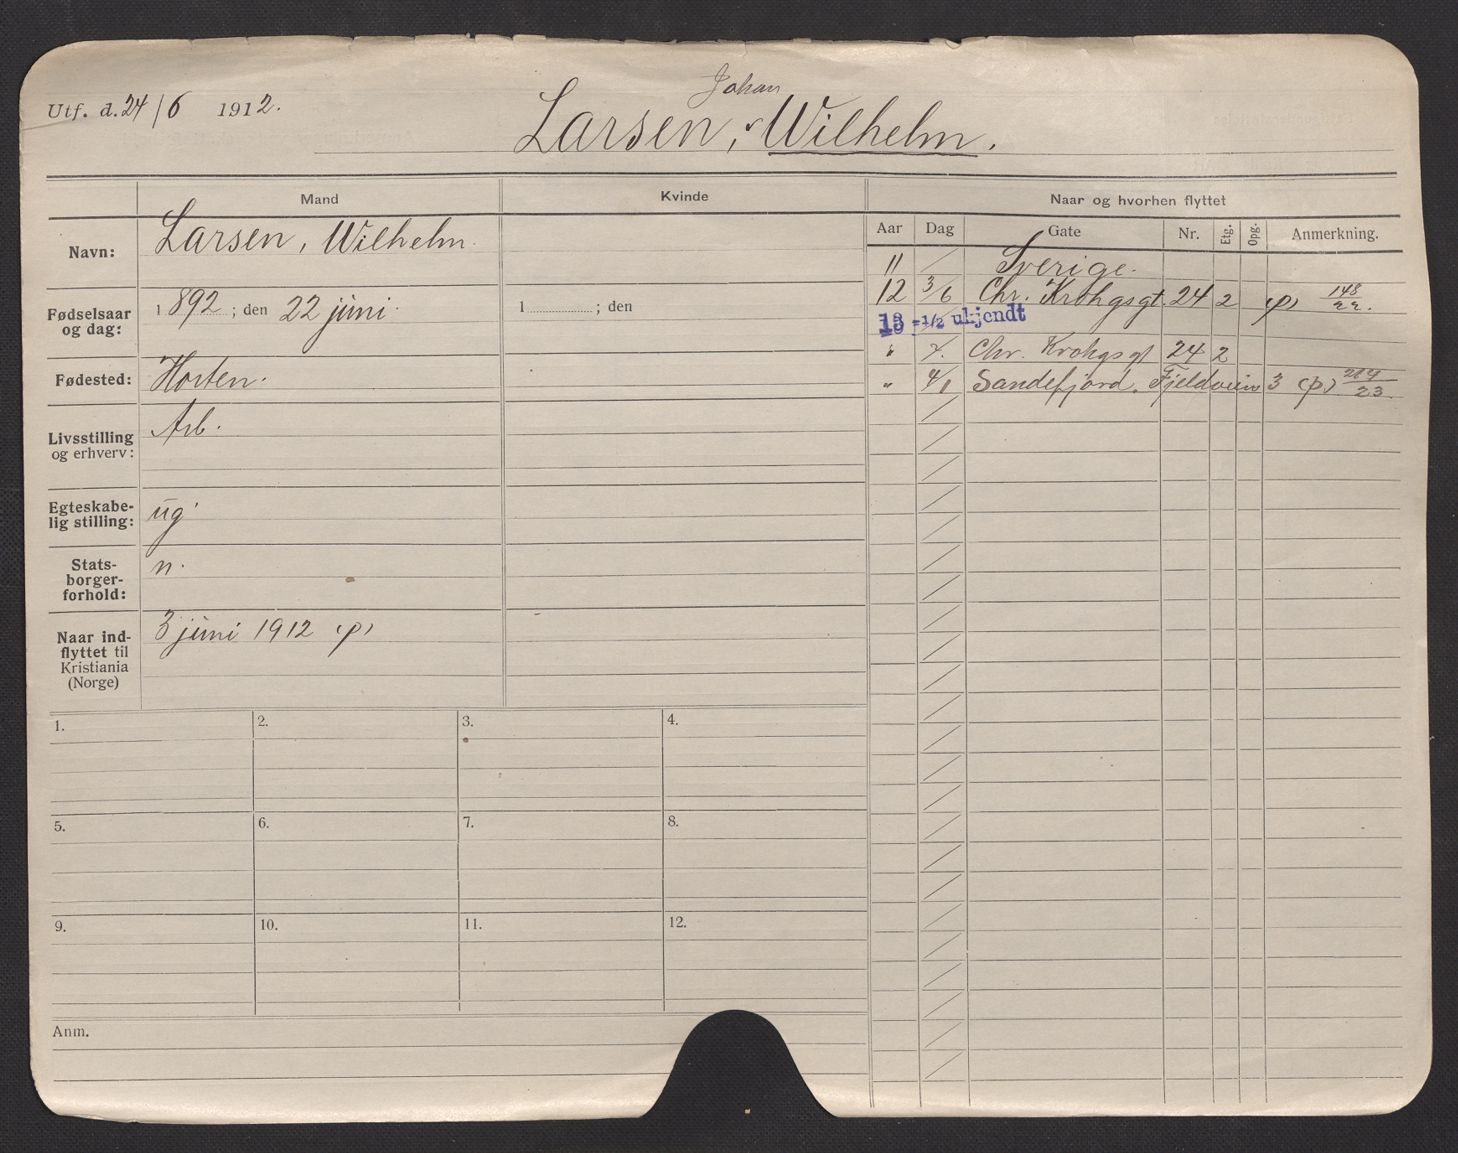 Utf. d. 24/6 1912.
Johan
Larsen, Wilhelm.
Mand
Kvinde
Naar og hvorhen flyttet
Aar Dag Gate Nr. Etg. Opg. Anmerkning.
Navn: Larsen, Wilhelm.
Fødselsaar og dag: 1892; den 22 juni. 1 ; den
Fødested: Horten.
Livsstilling og erhverv: Arb.
Egteskabelig stilling: ug
Statsborgerforhold: n.
Naar indflyttet til Kristiania (Norge) 3 juni 1912 (p)
11 Sverige.
12 3/6 Chr. Krohgsgt. 24 2 (p) 148/22.
13 =1/2 ukjendt
" Chr. Krohgsgt 24 2
" 4/1 Sandefjord. Fjeldveien 3 (p) 214/23.
1. 2. 3. 4.
5. 6. 7. 8.
9. 10. 11. 12.
Anm.